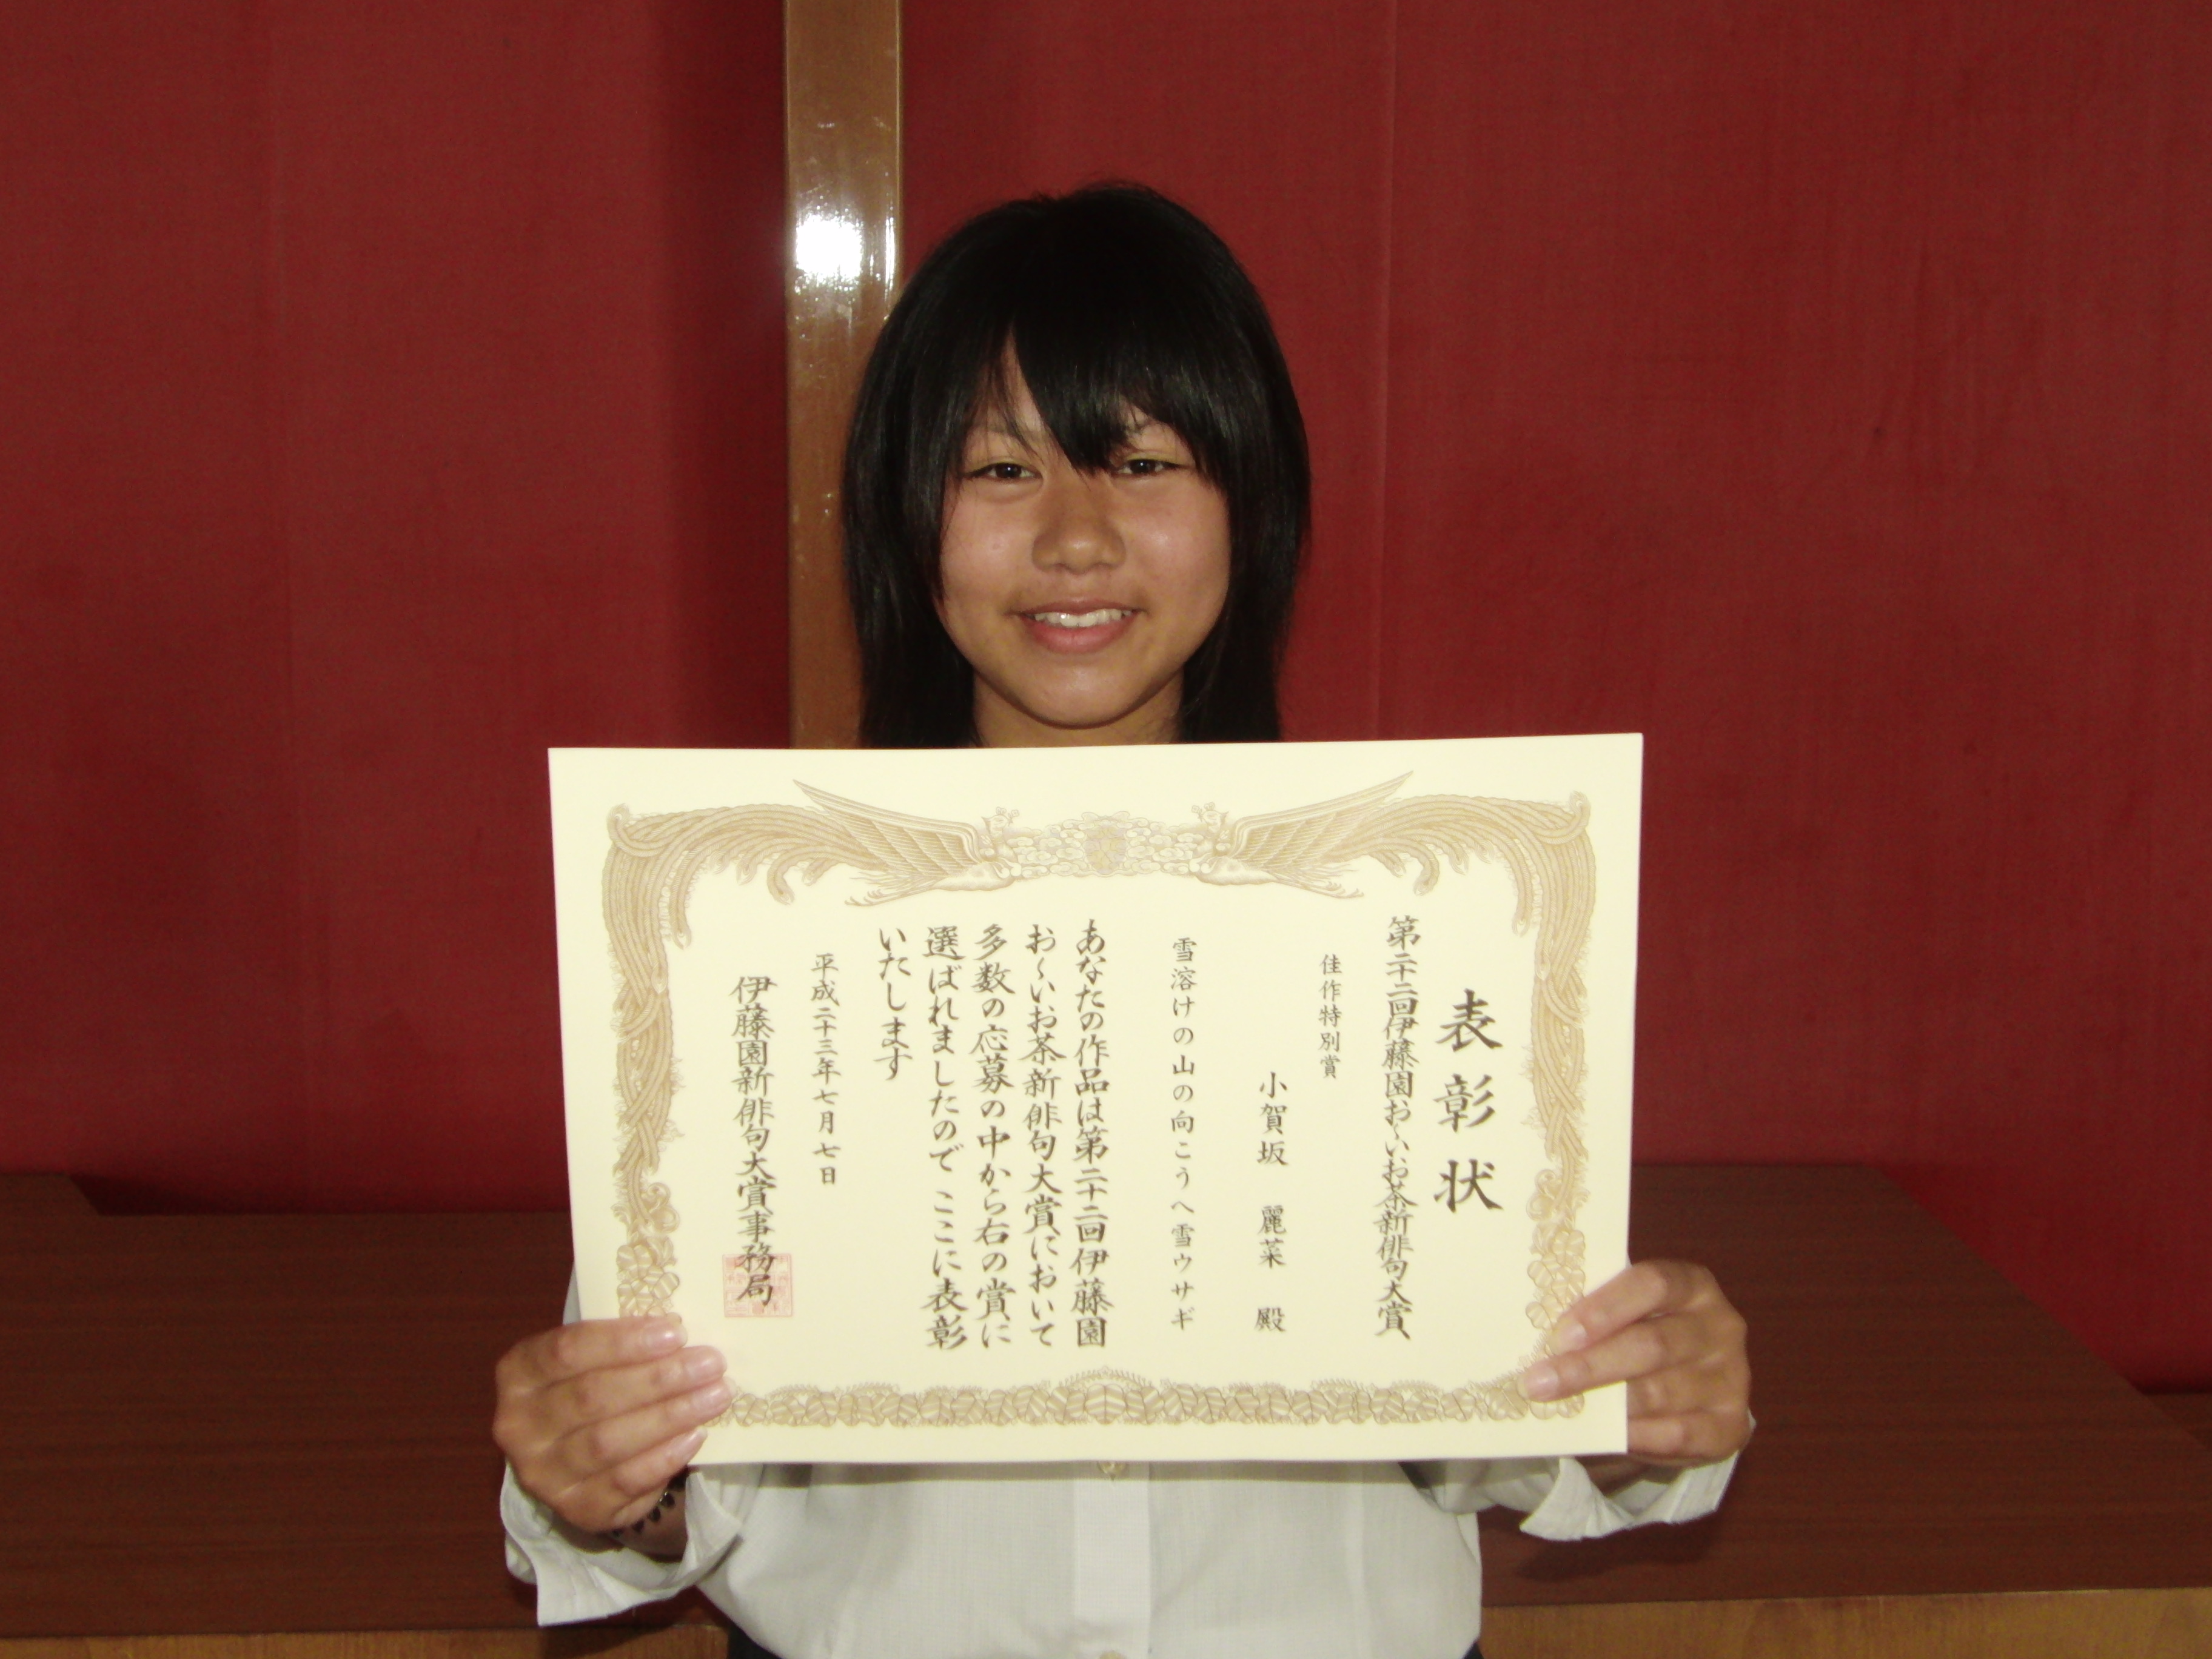 表彰状
第二十二回伊藤園お〜いお茶新俳句大賞
佳作特別賞
小賀坂 麗菜 殿
雪溶けの山の向こうへ雪ウサギ
あなたの作品は第二十二回伊藤園
お〜いお茶新俳句大賞において
多数の応募の中から右の賞に
選ばれましたので ここに表彰
いたします
平成二十三年七月七日
伊藤園新俳句大賞事務局